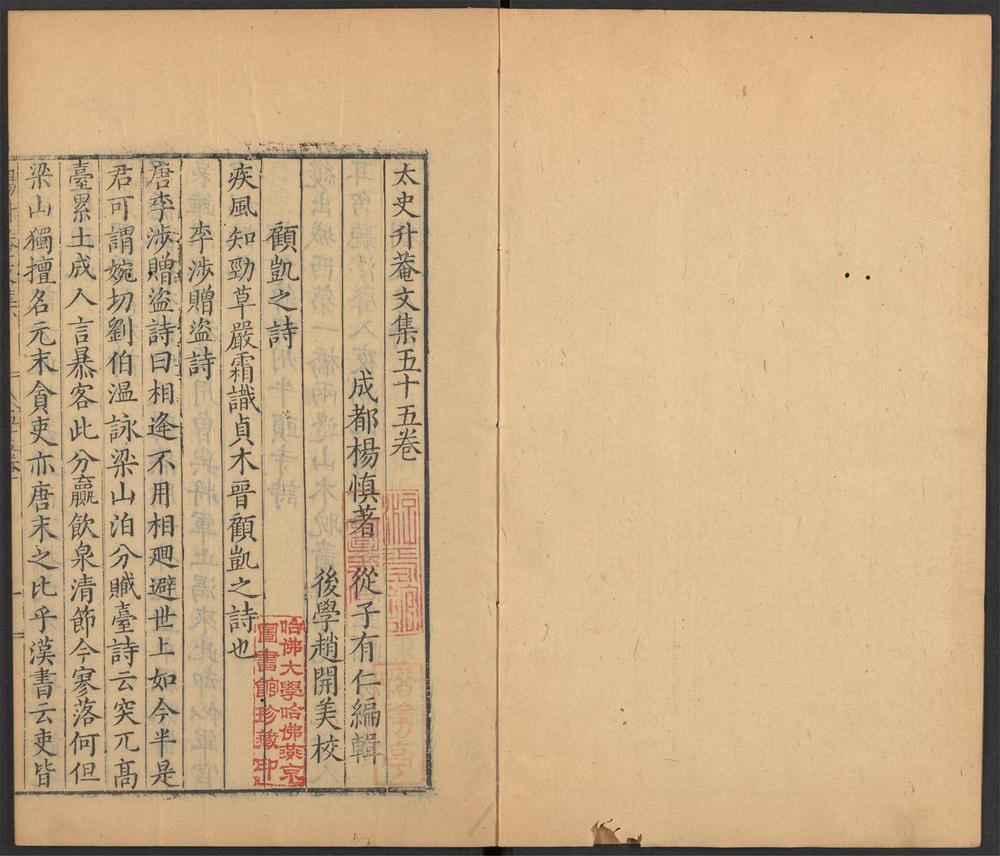 太史升菴文集五十五巻
成都楊慎著 從子有仁編輯
後學趙開美校
顧凱之詩
疾風知勁草嚴霜識貞木晉顧凱之詩也
李涉贈盜詩
唐李涉贈盜詩曰相逄不用相廻避世上如今半是
君可謂婉切劉伯温詠梁山泊分贓臺詩云突兀髙
臺累土成人言暴客此分贏飲泉清節今寥落何但
梁山獨擅名元末貪吏亦唐末之比乎漢書云吏皆
哈佛大學哈佛燕京
圖書館珍藏印